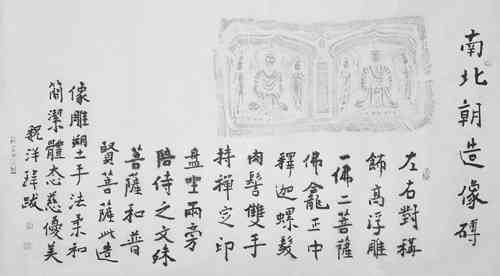 南北朝造像磚
左右對稱
飾高浮雕
一佛二菩薩
佛龕正中
釋迦螺髮
肉髻雙手
持禪定印
盤坐兩旁
陪侍之文殊
菩薩和普
賢菩薩此造
像雕塑手法柔和
簡潔體态慈優美
魏洋瑋跋